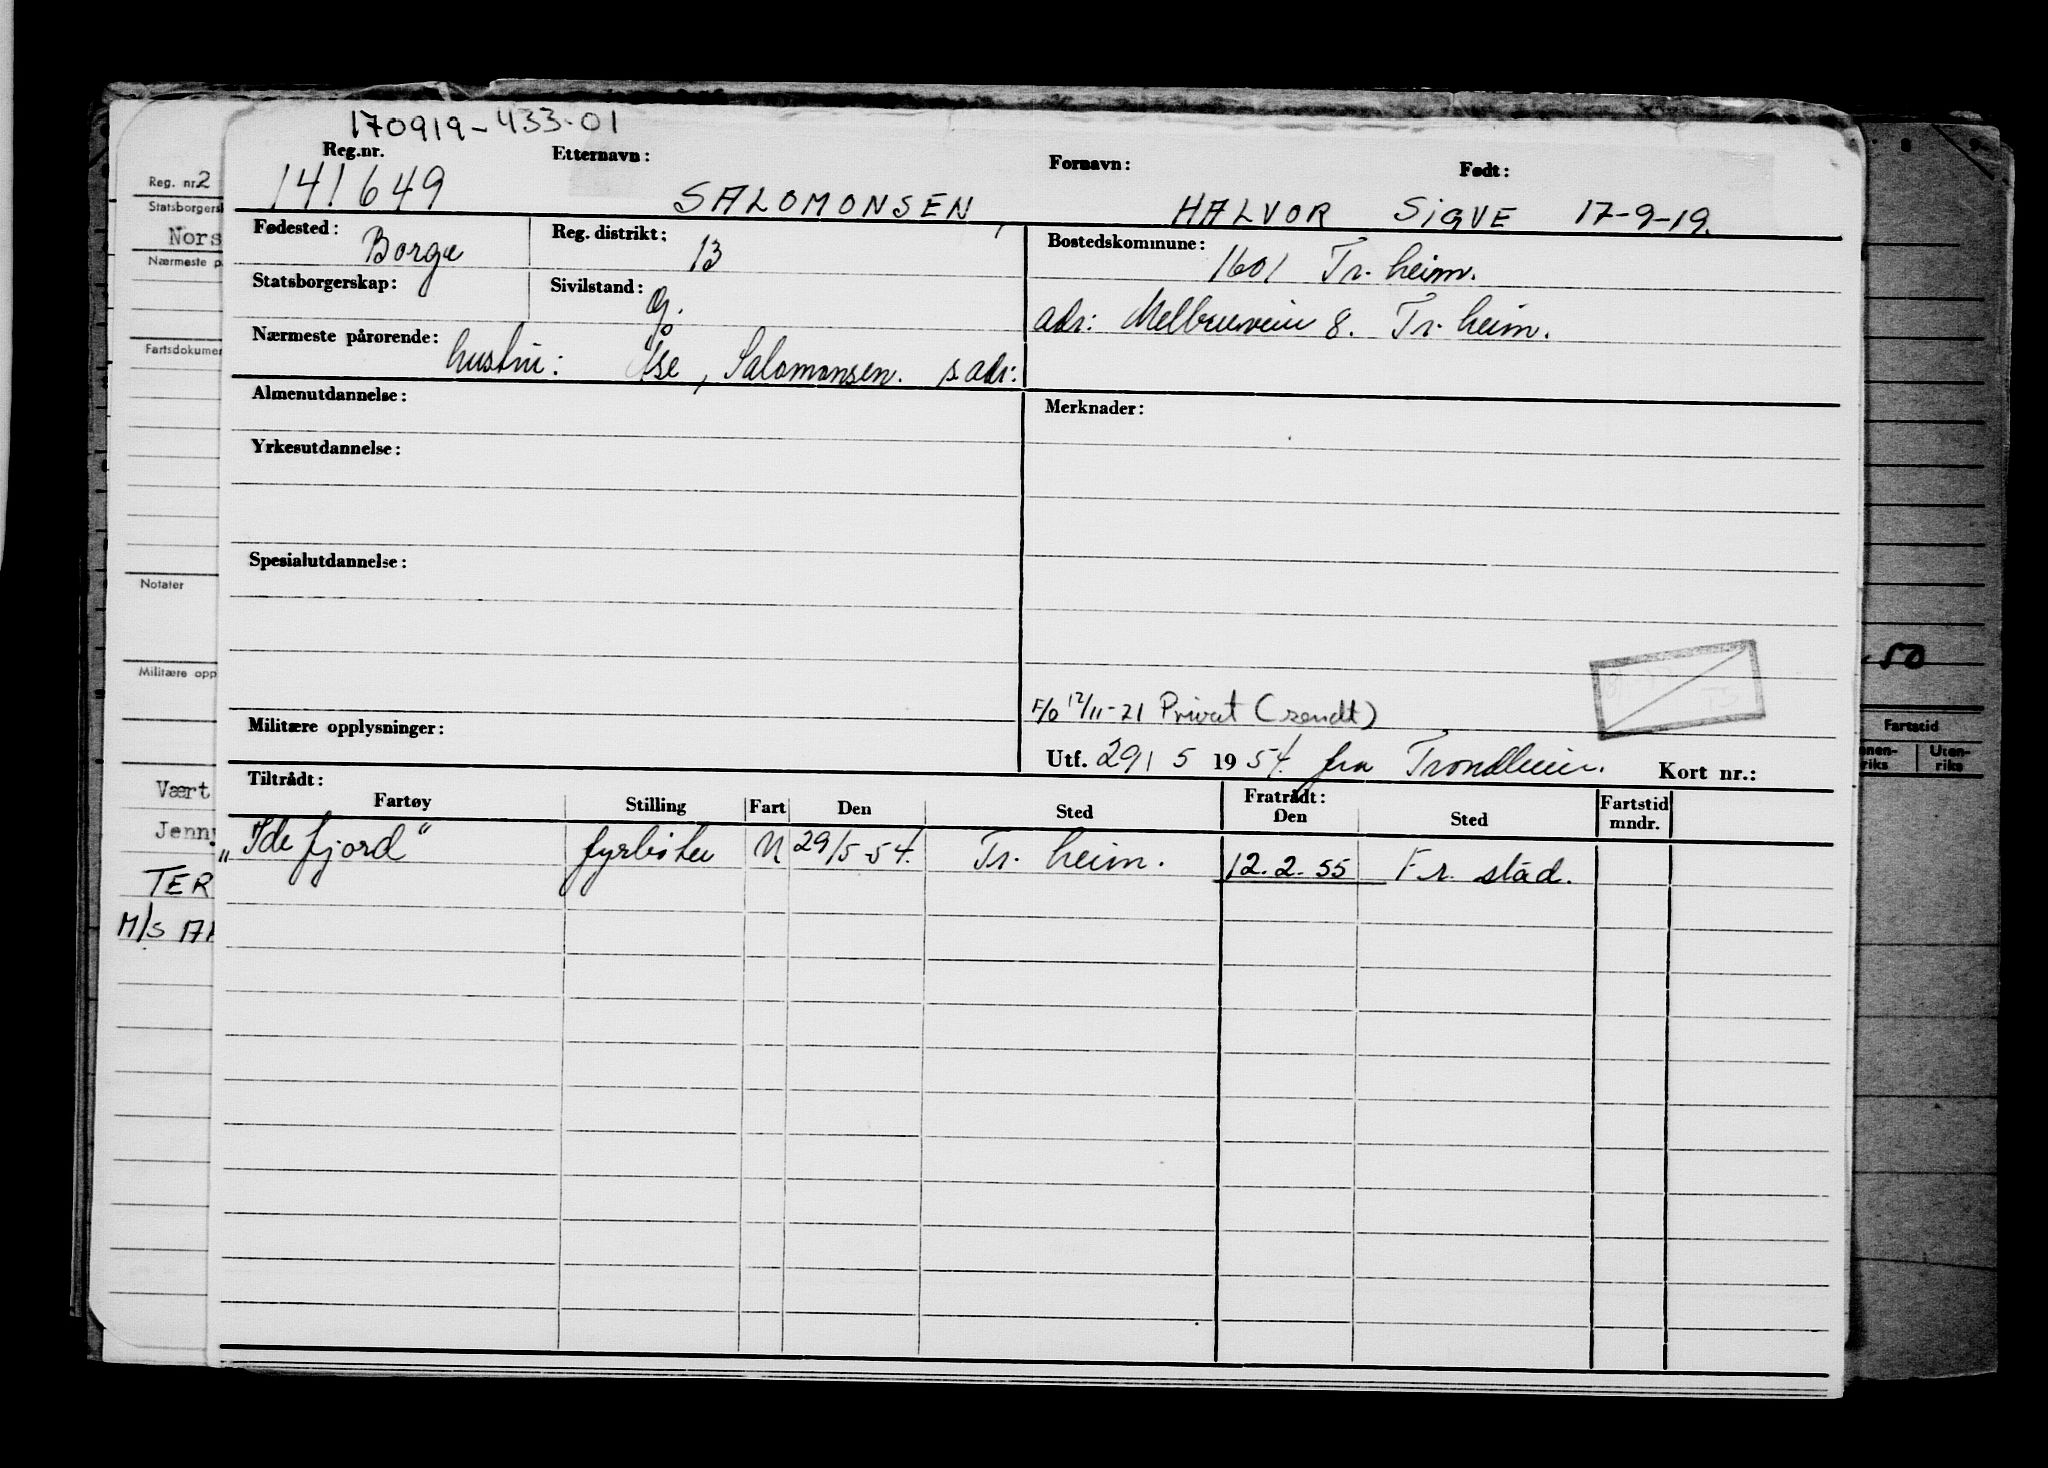 170919-433-01
Reg.nr. Etternavn: Fornavn: Født:
141649 SALOMONSEN HALVOR SIGVE 17-9-19.
Fødested: Borge Reg. distrikt: 13 Bostedskommune: 1601 Tr. heim.
Statsborgerskap: Sivilstand: g. adr: 8. Tr. heim.
Nærmeste pårørende: hustru: Åse, Salomonsen. s. adr:
Almenutdannelse: Merknader:
Yrkesutdannelse:
Spesialutdannelse:
F/O 12/11-21 Privat (sendt)
Militære opplysninger: Utf. 29/5 1954 fra Trondheim. Kort nr.:
Tiltrådt: Fratrådt:
Fartøy Stilling Fart Den Sted Den Sted Fartstid mndr.
"Idefjord" fyrbøter N 29/5-54. Tr. heim. 12.2.55 Fr. stad.
Reg. nr. 2
Statsborgersk
Nors
Nærmeste p
Fartsdokumen
Notater
Militære opp
Vært
Jenny
TER
M/S
50
Fartstid
nen-riks Uten-riks